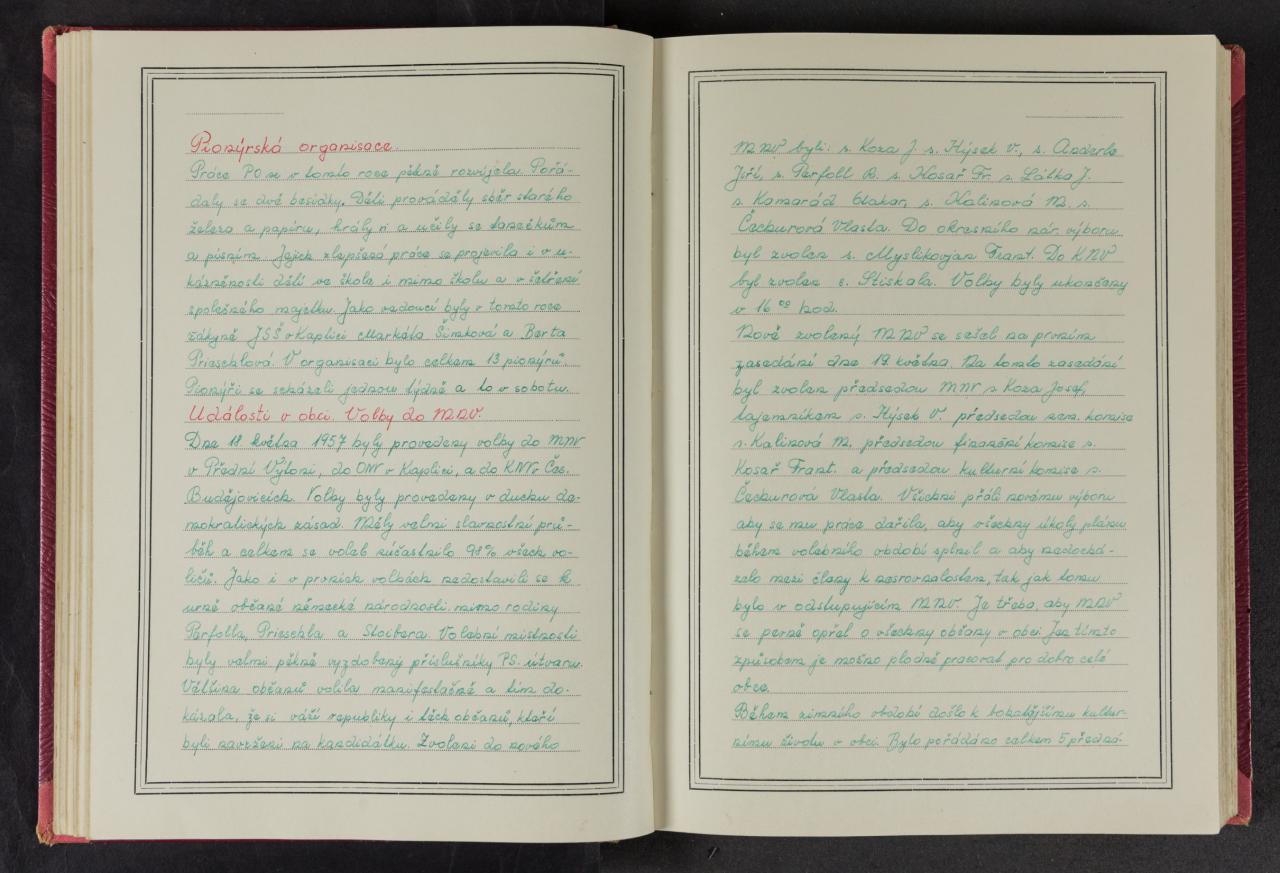 Pionýrská organisace.
Práce PO se v tomto roce pěkně rozvíjela. Pořá-
daly se dvě besídky. Děti prováděly sběr starého
železa a papíru, hrály si a učily se tanečkům
a písním. Jejich zlepšená práce se projevila i v u-
kázněnosti dětí ve škole i mimo školu a v šetření
společného majetku. Jako vedoucí byly v tomto roce
žákyně JSŠ v Kaplici Markéta Šimková a Berta
Prieschlová. V organisaci bylo celkem 13 pionýrů.
Pionýři se scházeli jednou týdně a to v sobotu.
Události v obci. Volby do MNV.
Dne 18. května 1957 byly provedeny volby do MNV
v Přední Výtoni, do ONV v Kaplici, a do KNV v Čes.
Budějovicích. Volby byly provedeny v duchu de-
mokratických zásad. Měly velmi slavnostní prů-
běh a celkem se voleb zúčastnilo 98% všech vo-
ličů. Jako i v prvních volbách nedostavili se k
urně občané německé národnosti mimo rodiny
Perfolla, Prieschla a Stoibera. Volební místnosti
byly velmi pěkně vyzdobeny příslušníky PS. útvaru.
Většina občanů volila manifestačně a tím do-
kázala, že si váží republiky i těch občanů, kteří
byli navrženi na kandidátku. Zvoleni do nového
MNV byli: s. Koza J. s. Hýsek V., s. Anderle
Jiří, s. Perfoll B. s. Kosař Fr. s. Látka J.
s. Kamarád Otakar, s. Kalinová M. s.
Čechurová Vlasta. Do okresního nár. výboru
byl zvolen s. Myslikovjan Frant. Do KNV
byl zvolen s. Stiskala. Volby byly ukončeny
v 16 00 hod.
Nově zvolený MNV se sešel na prvním
zasedání dne 19. května. Na tomto zasedání
byl zvolen předsedou MNV s Koza Josef,
tajemníkem s. Hýsek V. předsedou zem. komise
s. Kalinová M. předsedou finanční komise s.
Kosař Frant. a předsedou kulturní komise s.
Čechurová Vlasta. Všichni přáli novému výboru
aby se mu práce dařila, aby všechny úkoly plánu
během volebního období splnil a aby nedochá-
zelo mezi členy k nesrovnalostem, tak jak tomu
bylo v odstupujícím MNV. Je třeba, aby MNV
se pevně opřel o všechny občany v obci. Jen tímto
způsobem je možno plodně pracovat pro dobro celé
obce.
Během zimního období došlo k bohatějšímu kultur-
nímu životu v obci. Bylo pořádáno celkem 5 předná-